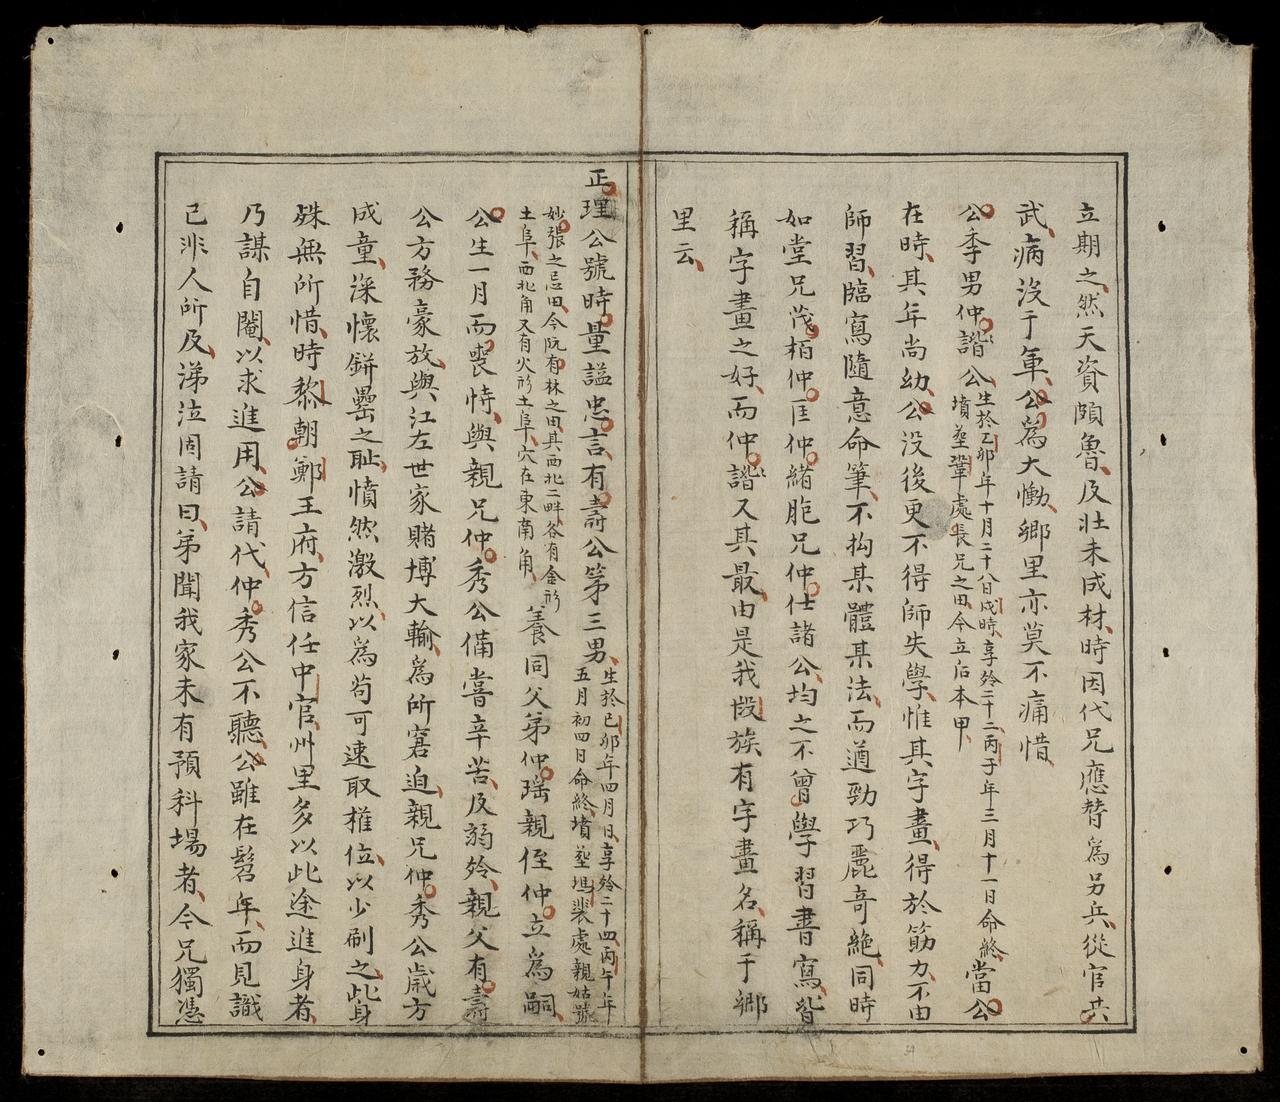 立期之然天資頗魯及壯未成材時因代兄應替爲另兵從官共
武病沒于軍公爲大慟鄉里亦莫不痛惜
公季男仲諧公
生於乙卯年十月二十八日戌時享齡二十二丙子年三月十一日命終
墳塟鞏處長兄之田今立后本甲
當公
在時其年尚幼公没後更不得師失學惟其字畫得於筋力不由
師習臨寫隨意命筆不拘某體某法而遒勁巧麗奇絶同時
如堂兄茂栢仲匡仲緒胣兄仲仕諸公均之不曾學習書寫皆
稱字畫之好而仲諧又其最由是我㙇族有字畫名稱于鄉
里云
正理公號時量謚忠言有壽公第三男
生於己卯年四月日享齡二十四丙午年
五月初四日命終墳塟塸裴處親姑號
妙張之忌田今阮有林之田其西北二畔各有金形
土阜西北角又有火形土阜穴在東南角
養同父弟仲瑶親侄仲立爲嗣
公生一月而喪恃與親兄仲秀公備嘗辛苦及弱齡親父有壽
公方務豪放與江左世家賭博大輸爲所窘迫親兄仲秀公歲方
成童深懷缾罍之耻憤然激烈以爲苟可速取權位以少刷之此身
殊無所惜時黎朝鄭王府方信任中官州里多以此途進身者
乃謀自閹以求進用公請代仲秀公不聽公雖在髫年而見識
已非人所及涕泣固請曰弟聞我家未有預科場者今兄獨憑